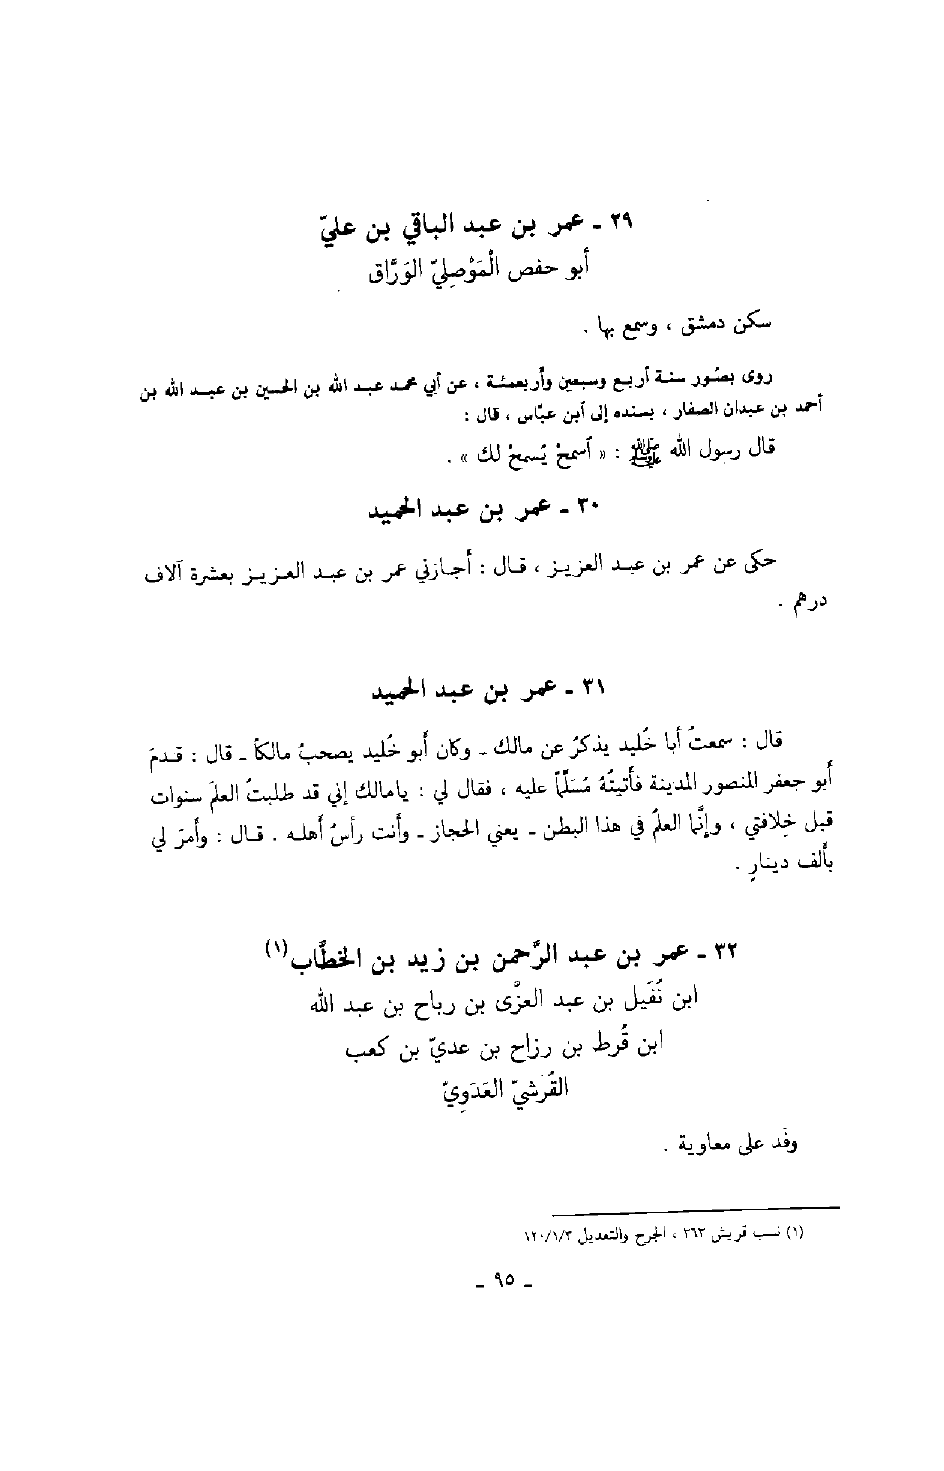 ٢٩ ـ عمر بن عبد الباقي بن عليّ
أبو حفص الْمَوْصِليّ الوَرَّاق
سكن دمشق ، وسمع بها .
روى بصُور سنة أربع وسبعين وأربعمئة ، عن أبي محمد عبد الله بن الحسين بن عبد الله بن
أحمد بن عبدان الصفار ، بسنده إلى ابن عبّاس ، قال :
قال رسول الله ﷺ : « اَسمحْ يُسمحْ لك » .
٣٠ ـ عمر بن عبد الحميد
حكى عن عمر بن عبد العزيز ، قال : أجازني عمر بن عبد العزيز بعشرة آلاف
درهم .
٣١ ـ عمر بن عبد الحميد
قال : سمعتُ أبا خُليد يذكرُ عن مالك ـ وكان أبو خُليد يصحبُ مالكاً ـ قال : قدمَ
أبو جعفر المنصور المدينة فأتيتُهُ مُسَلِّماً عليه ، فقال لي : يامالك إني قد طلبتُ العلمَ سنوات
قبل خِلافتي ، وإنَّما العلمُ في هذا البطن ـ يعني الحجاز ـ وأنت رأسُ أهله . قال : وأمرَ لي
بألف دينارٍ .
٣٢ ـ عمر بن عبد الرَّحمن بن زيد بن الخطَّاب(١)
ابن نُفَيل بن عبد العزَّى بن رباح بن عبد الله
ابن قُرط بن رزاح بن عديّ بن كعب
القُرشيّ العَدَوِيّ
وفَد على معاوية .
(١) نسب قريش ٣٦٣ ، الجرح والتعديل ١٢٠/١/٣
ـ ٩٥ ـ